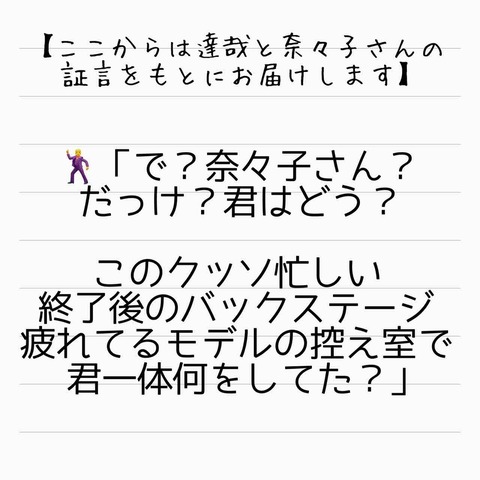 【ここからは達哉と奈々子さんの
証言をもとにお届けします】
🕺「で？奈々子さん？
だっけ？君はどう？
このクッソ忙しい
終了後のバックステージ
疲れてるモデルの控え室で
君一体何をしてた？」